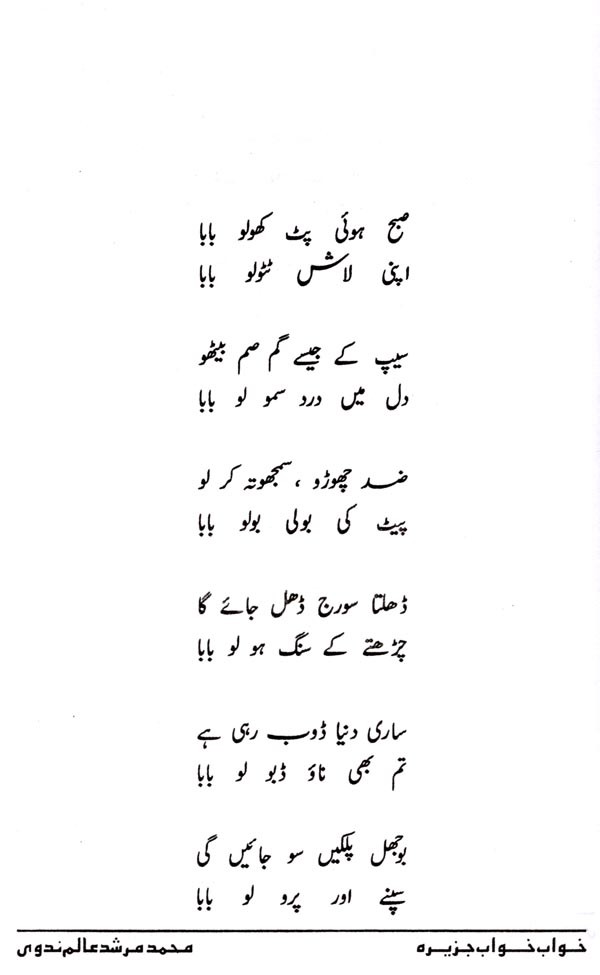 صبح ہوئی پٹ کھولو بابا
اپنی لاش ٹٹولو بابا
سیپ کے جیسے گم صم بیٹھو
دل میں درد سمو لو بابا
ضد چھوڑو ، سمجھوتہ کر لو
پیٹ کی بولی بولو بابا
ڈھلتا سورج ڈھل جائے گا
چڑھتے کے سنگ ہو لو بابا
ساری دنیا ڈوب رہی ہے
تم بھی ناؤ ڈبو لو بابا
بوجھل پلکیں سو جائیں گی
سپنے اور پرو لو بابا
خواب خواب جزیرہ محمد مرشد عالم ندوی